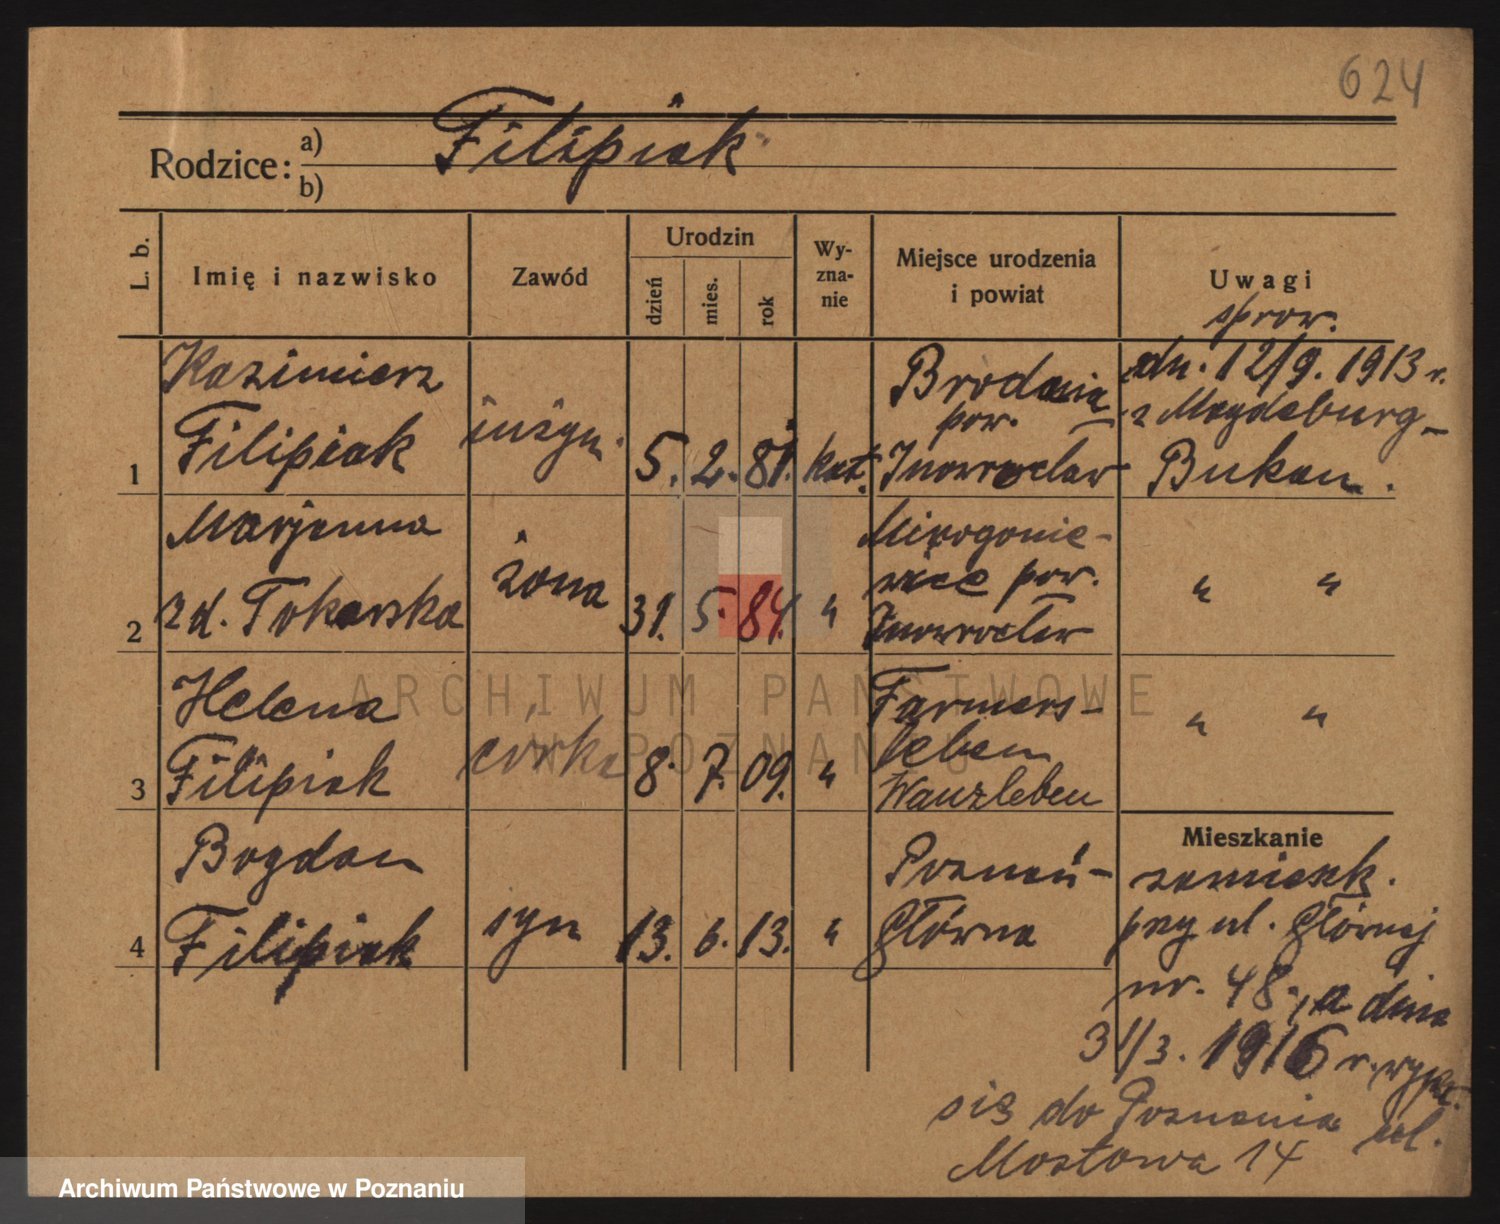 624
Rodzice: a) Filipiak
b)
L. b.
Imię i nazwisko
Zawód
Urodzin
dzień
mies.
rok
Wy-
zna-
nie
Miejsce urodzenia
i powiat
Uwagi
sprow.
1
Kazimierz
Filipiak
inżyn.
5. 2. 81.
kat.
pow.
Inowrocław
dn. 12/9. 1913 r.
z Magdeburg-
Bukau.
2
Marjanna
zd. Tokarska
żona
31. 5. 84.
"
Mirogonie-
wice pow.
Inowrocław
" "
3
Helena
Filipiak
córka
8. 7. 09.
"
Farmers-
leben
Wanzleben
" "
4
Bogdan
Filipiak
syn
13. 6. 13.
"
Poznań-
Główna
Mieszkanie
zamieszk.
przy ul. Głównej
nr. 48., a dnia
31/3. 1916 r. wypr.
się do Poznania ul.
Mostowa 14
ARCHIWUM PAŃSTWOWE
W POZNANIU
Archiwum Państwowe w Poznaniu